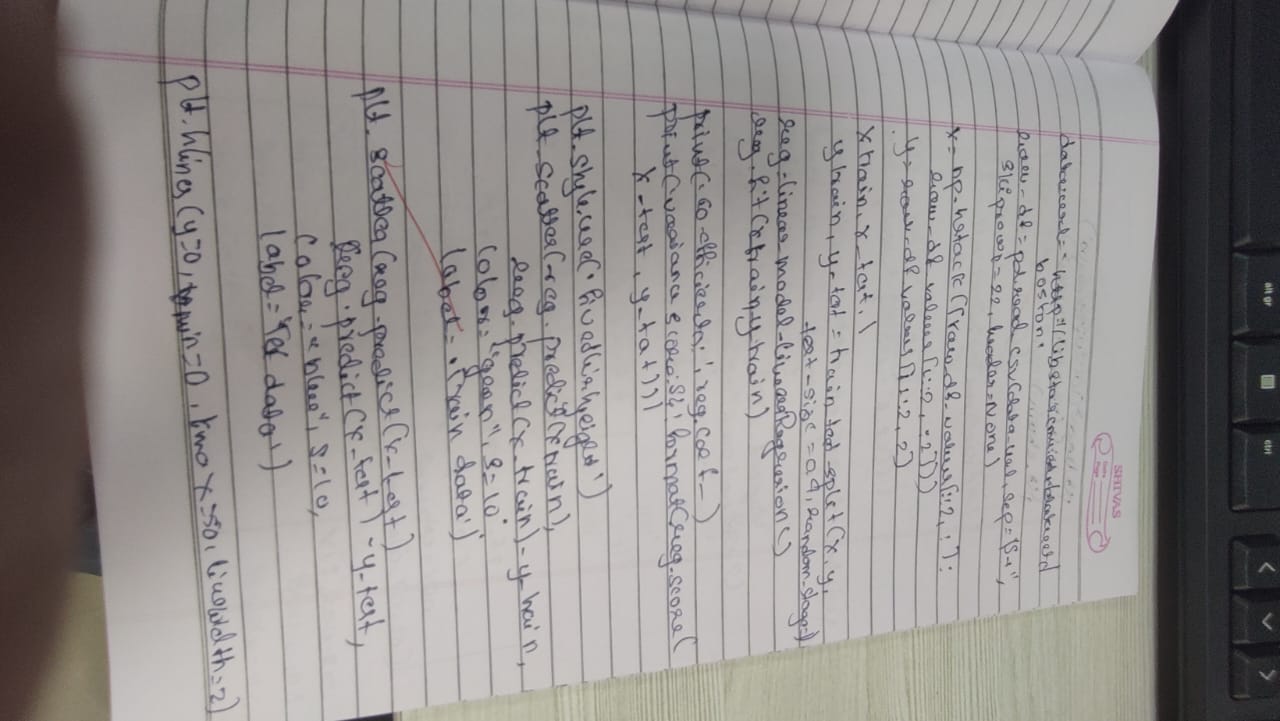 SHIVAS
data_url = "http://lib.stat.cmu.edu/datasets/
boston"
raw_df = pd.read_csv(data_url, sep="\s+",
skiprows=22, header=None)
x = np.hstack([raw_df.values[::2, :],
raw_df.values[1::2, :2]])
y = raw_df.values[1::2, 2]
x train, x_test, \
y train, y_test = train_test_split(x, y,
test_size = 0.4, random_state=1)
reg = linear_model.LinearRegression()
reg.fit(x train, y train)
print('co-efficients:', reg.coef_)
print('variance score: {}'.format(reg.score(
x_test, y_test)))
plt.style.use('fivethirtyeight')
plt.scatter(reg.predict(x train),
reg.predict(x_train) - y_train,
color = "green", s=10
label = 'train data')
plt.scatter(reg.predict(x_test)
reg.predict(x_test) - y_test,
color = "blue", s=10,
label = 'test data')
plt.hlines(y=0, xmin=0, xmax=50, linewidth=2)